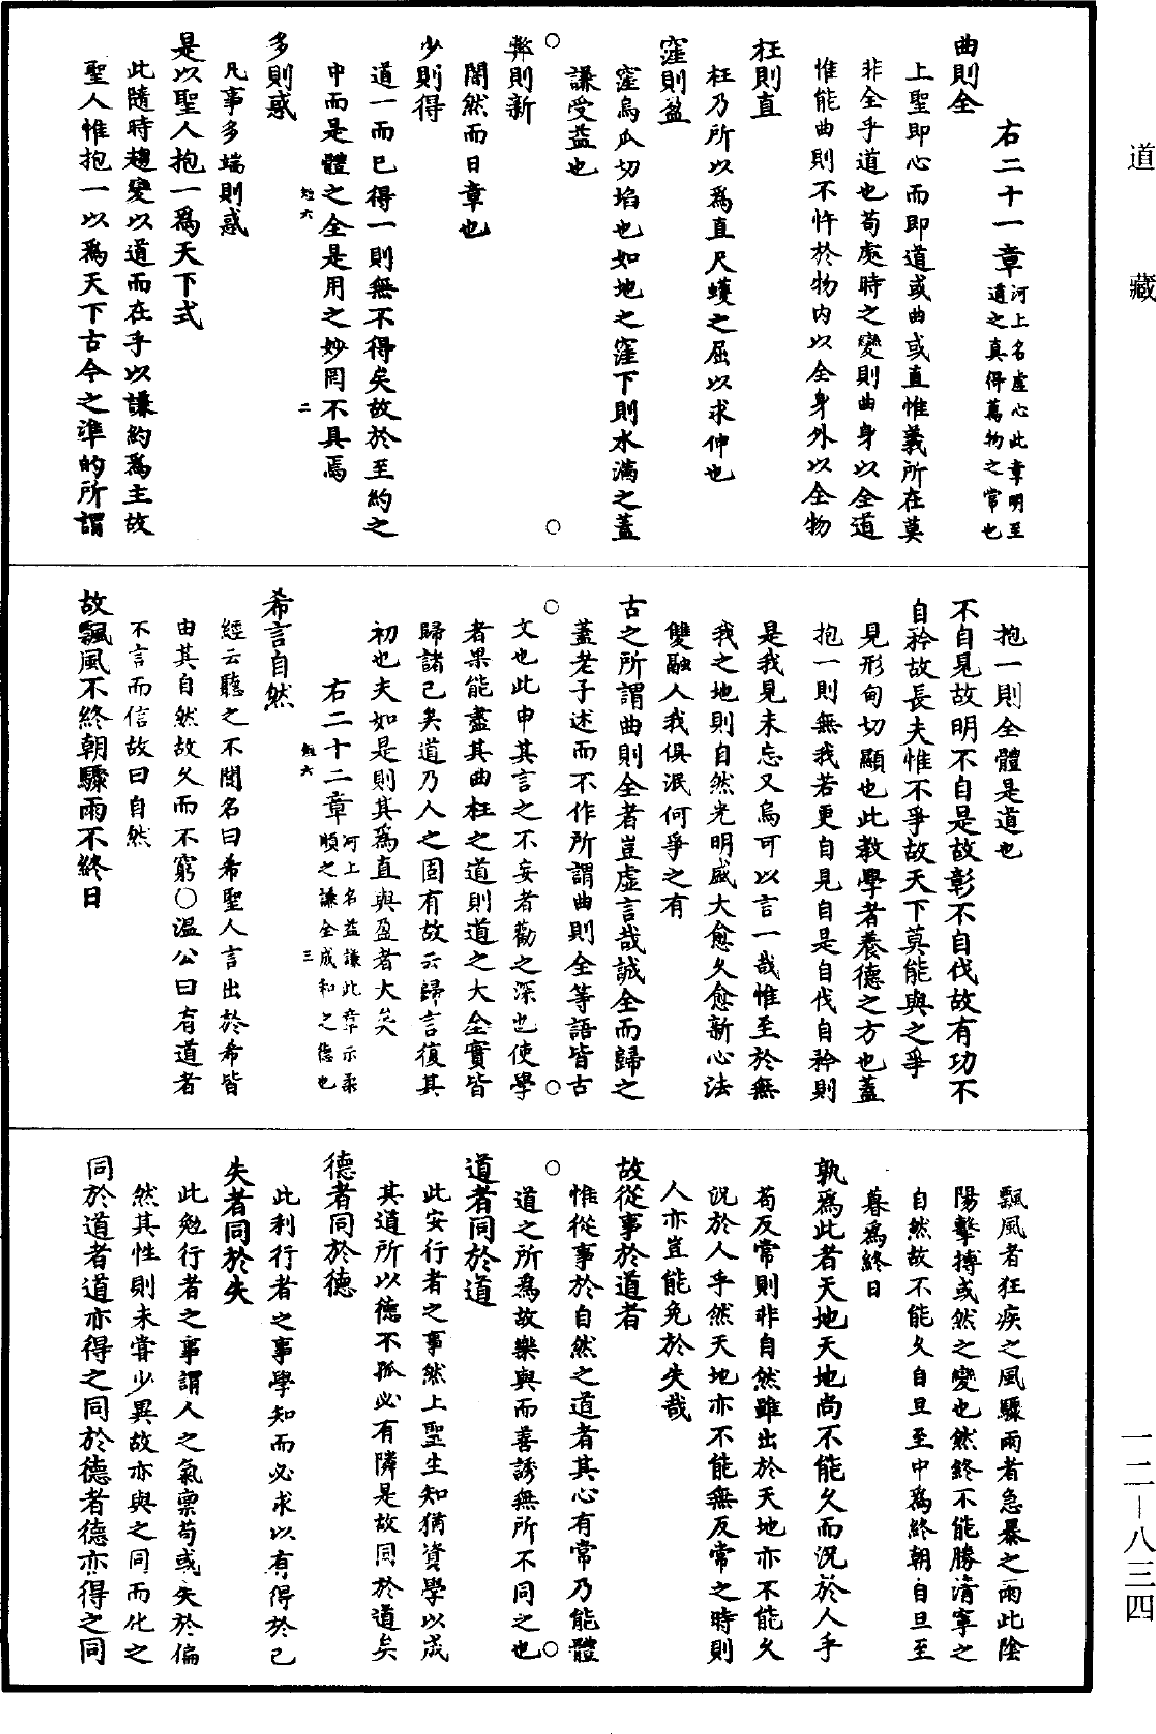 道藏
右二十一章河上名虛心此章明至
道之真得萬物之常也
曲則全
上聖即心而即道或曲或直惟義所在莫
非全乎道也苟處時之變則曲身以全道
惟能曲則不忤於物內以全身外以全物
枉則直
枉乃所以爲直尺蠖之屈以求伸也
窪則盈
窪烏瓜切埳也如地之窪下則水滿之蓋
謙受益也
弊則新
闇然而日章也
少則得
道一而已得一則無不得矣故於至約之
中而是體之全是用之妙罔不具焉
短六 二
多則惑
凡事多端則惑
是以聖人抱一爲天下式
此隨時趨變以道而在乎以謙約爲主故
聖人惟抱一以爲天下古今之準的所謂
抱一則全體是道也
不自見故明不自是故彰不自伐故有功不
自矜故長夫惟不爭故天下莫能與之爭
見形甸切顯也此教學者養德之方也蓋
抱一則無我若更自見自是自伐自矜則
是我見未忘又烏可以言一哉惟至於無
我之地則自然光明盛大愈久愈新心法
雙融人我俱泯何爭之有
古之所謂曲則全者豈虛言哉誠全而歸之
蓋老子述而不作所謂曲則全等語皆古
文也此申其言之不妄者勸之深也使學
者果能盡其曲枉之道則道之大全實皆
歸諸己矣道乃人之固有故云歸言復其
初也夫如是則其爲直與盈者大矣
右二十二章河上名益謙此章示柔
順之謙全成和之德也
短六 三
希言自然
經云聽之不聞名曰希聖人言出於希皆
由其自然故久而不窮○溫公曰有道者
不言而信故曰自然
故飄風不終朝驟雨不終日
飄風者狂疾之風驟雨者急暴之雨此陰
陽擊搏或然之變也然終不能勝清寧之
自然故不能久自旦至中爲終朝自旦至
暮爲終日
孰爲此者天地天地尚不能久而況於人乎
苟反常則非自然雖出於天地亦不能久
況於人乎然天地亦不能無反常之時則
人亦豈能免於失哉
故從事於道者
惟從事於自然之道者其心有常乃能體
道之所爲故樂與而善誘無所不同之也
道者同於道
此安行者之事然上聖生知猶資學以成
其道所以德不孤必有隣是故同於道矣
德者同於德
此利行者之事學知而必求以有得於己
失者同於失
此勉行者之事謂人之氣禀苟或失於偏
然其性則未嘗少異故亦與之同而化之
同於道者道亦得之同於德者德亦得之同
一二—八三四